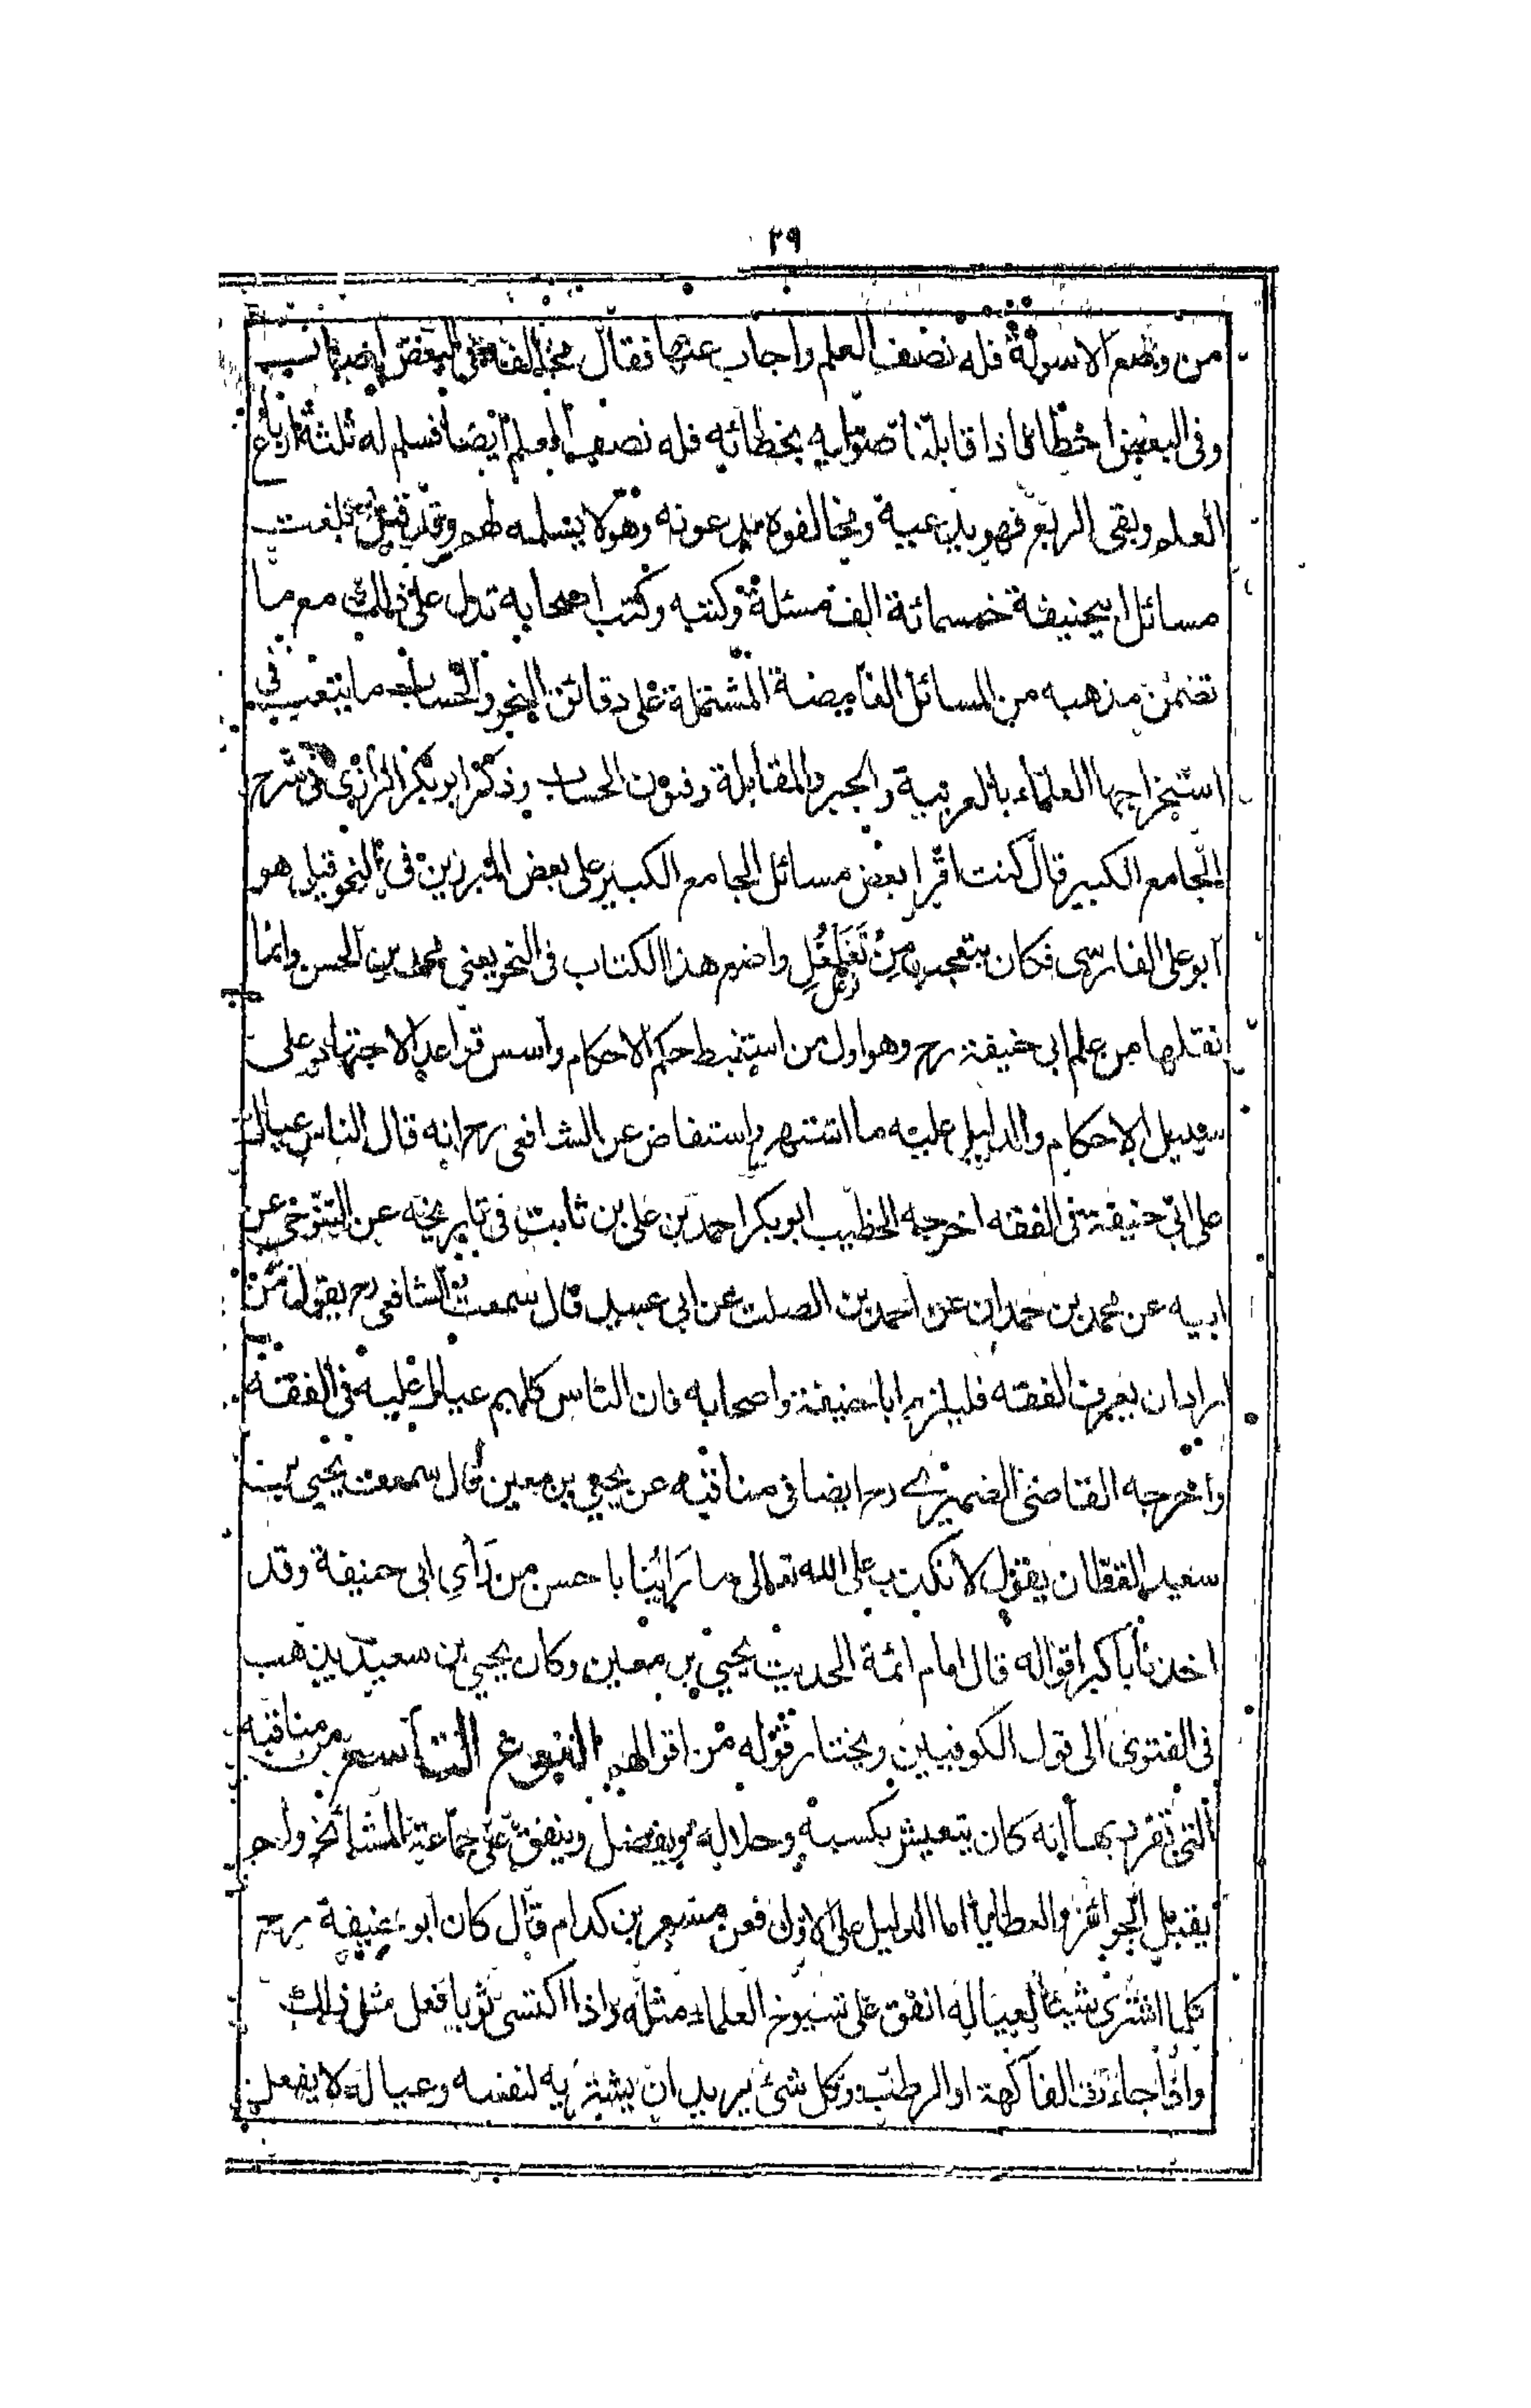 ٢٩
من وضع الاسولة فله نصف العلم واجاب عنها فقال مخالفه فى البعض اصاب
وفى البعض اخطا فاذا قابلنا صوابه بخطائه فله نصف العلم ايضا فسلم له ثلثة ارباع
العلم وبقى الربع فهو يدعيه ومخالفوه يدعونه وهو لا يسلمه لهم وقد قيل بلغت
مسائل ابيحنيفة خمسمائة الف مسئلة وكتبه وكتب اصحابه تدل على ذلك مع ما
تضمن مذهبه من المسائل الغامضة المشتملة على دقائق النحو والحساب ما يتعب فى
استخراجها العلماء بالعربية والجبر والمقابلة وفنون الحساب وذكر ابو بكر الرازى فى شرح
الجامع الكبير قال كنت اقرا بعض مسائل الجامع الكبير على بعض المبرزين فى النحو قيل هو
ابو على الفارسى فكان يتعجب من تغلغل واضع هذا الكتاب فى النحو يعنى محمد بن الحسن وانما
نقلها من علم ابى حنيفة رح وهو اول من استنبط حكم الاحكام واسس قواعد الاجتهاد على
سبيل الاحكام والدليل عليه ما اشتهر واستفاض عن الشافعى رح انه قال الناس عيال
على ابى حنيفة فى الفقه اخرجه الخطيب ابو بكر احمد بن على بن ثابت فى تاريخه عن التنوخى عن
ابيه عن محمد بن حمدان عن احمد بن الصلت عن ابى عبيد قال سمعت الشافعى رح يقول من
اراد ان يعرف الفقه فليلزم ابا حنيفة واصحابه فان الناس كلهم عيال عليه فى الفقه
واخرجه القاضى الضميرى رح ايضا فى مناقبه عن يحيى بن معين قال سمعت يحيى بن
سعيد القطان يقول لا نكذب على الله تعالى ما رَاَيْنا باحسن من رَأىِ ابى حنيفة وقد
اخذنا باكبر اقواله قال امام ائمة الحديث يحيى بن معين وكان يحيى بن سعيد يذهب
فى الفتوى الى قول الكوفيين ويختار قوله من اقوالهم النوع التاسع من مناقبه
التى تفرد بها انه كان يتعيش بكسبه وحلاله ويفضل وينفق على جماعة المشائخ ولم
يقبل الجوائز والعطايا اما الدليل على الاول فعن مسعر بن كدام قال كان ابو حنيفة رح
كلما اشترى شيئا لعياله انفق على شيوخ العلماء مثله واذا اكتسى ثوبا فعل مثل ذلك
واذا جاءت الفاكهة او الرطب وكل شئ يريد ان يشتريه لنفسه وعياله لا يفعل